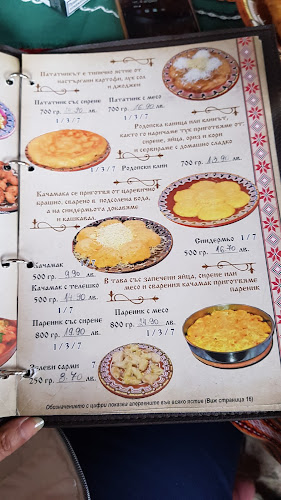 Пататникът е типично ястие от
настъргани картофи, лук сол
и джоджен
Пататник със сирене
700 гр. лв.
1 / 3 / 7
Пататник с месо
700 гр. 16.90 лв.
1 / 3 / 7
Родопска баница или клинът,
както го наричаме тук приготвяме от:
сирене, яйца, ориз и кори
и сервираме с домашно сладко
Родопски клин 700 гр. 13.90 лв.
Качамака се приготвя от царевично
брашно, сварено в подсолена вода,
а на синдермьото добавяме
и кашкавал
Качамак
500 гр. 9.90 лв.
Синдермьо 1 / 7
500 гр. 16.70 лв.
Качамак с телешко
500 гр. 14.90 лв.
1 / 7
В тава със запечени яйца, сирене или
месо и сварения качамак приготвяме
пареник
Пареник със сирене
800 гр. 19.90 лв.
1 / 3 / 7
Пареник с месо
800 гр. 19.90 лв.
1 / 3 / 7
сарми 7
250 гр. 8.70 лв.
Обозначението с цифри показва алергените във всяко ястие (Виж страница 16)